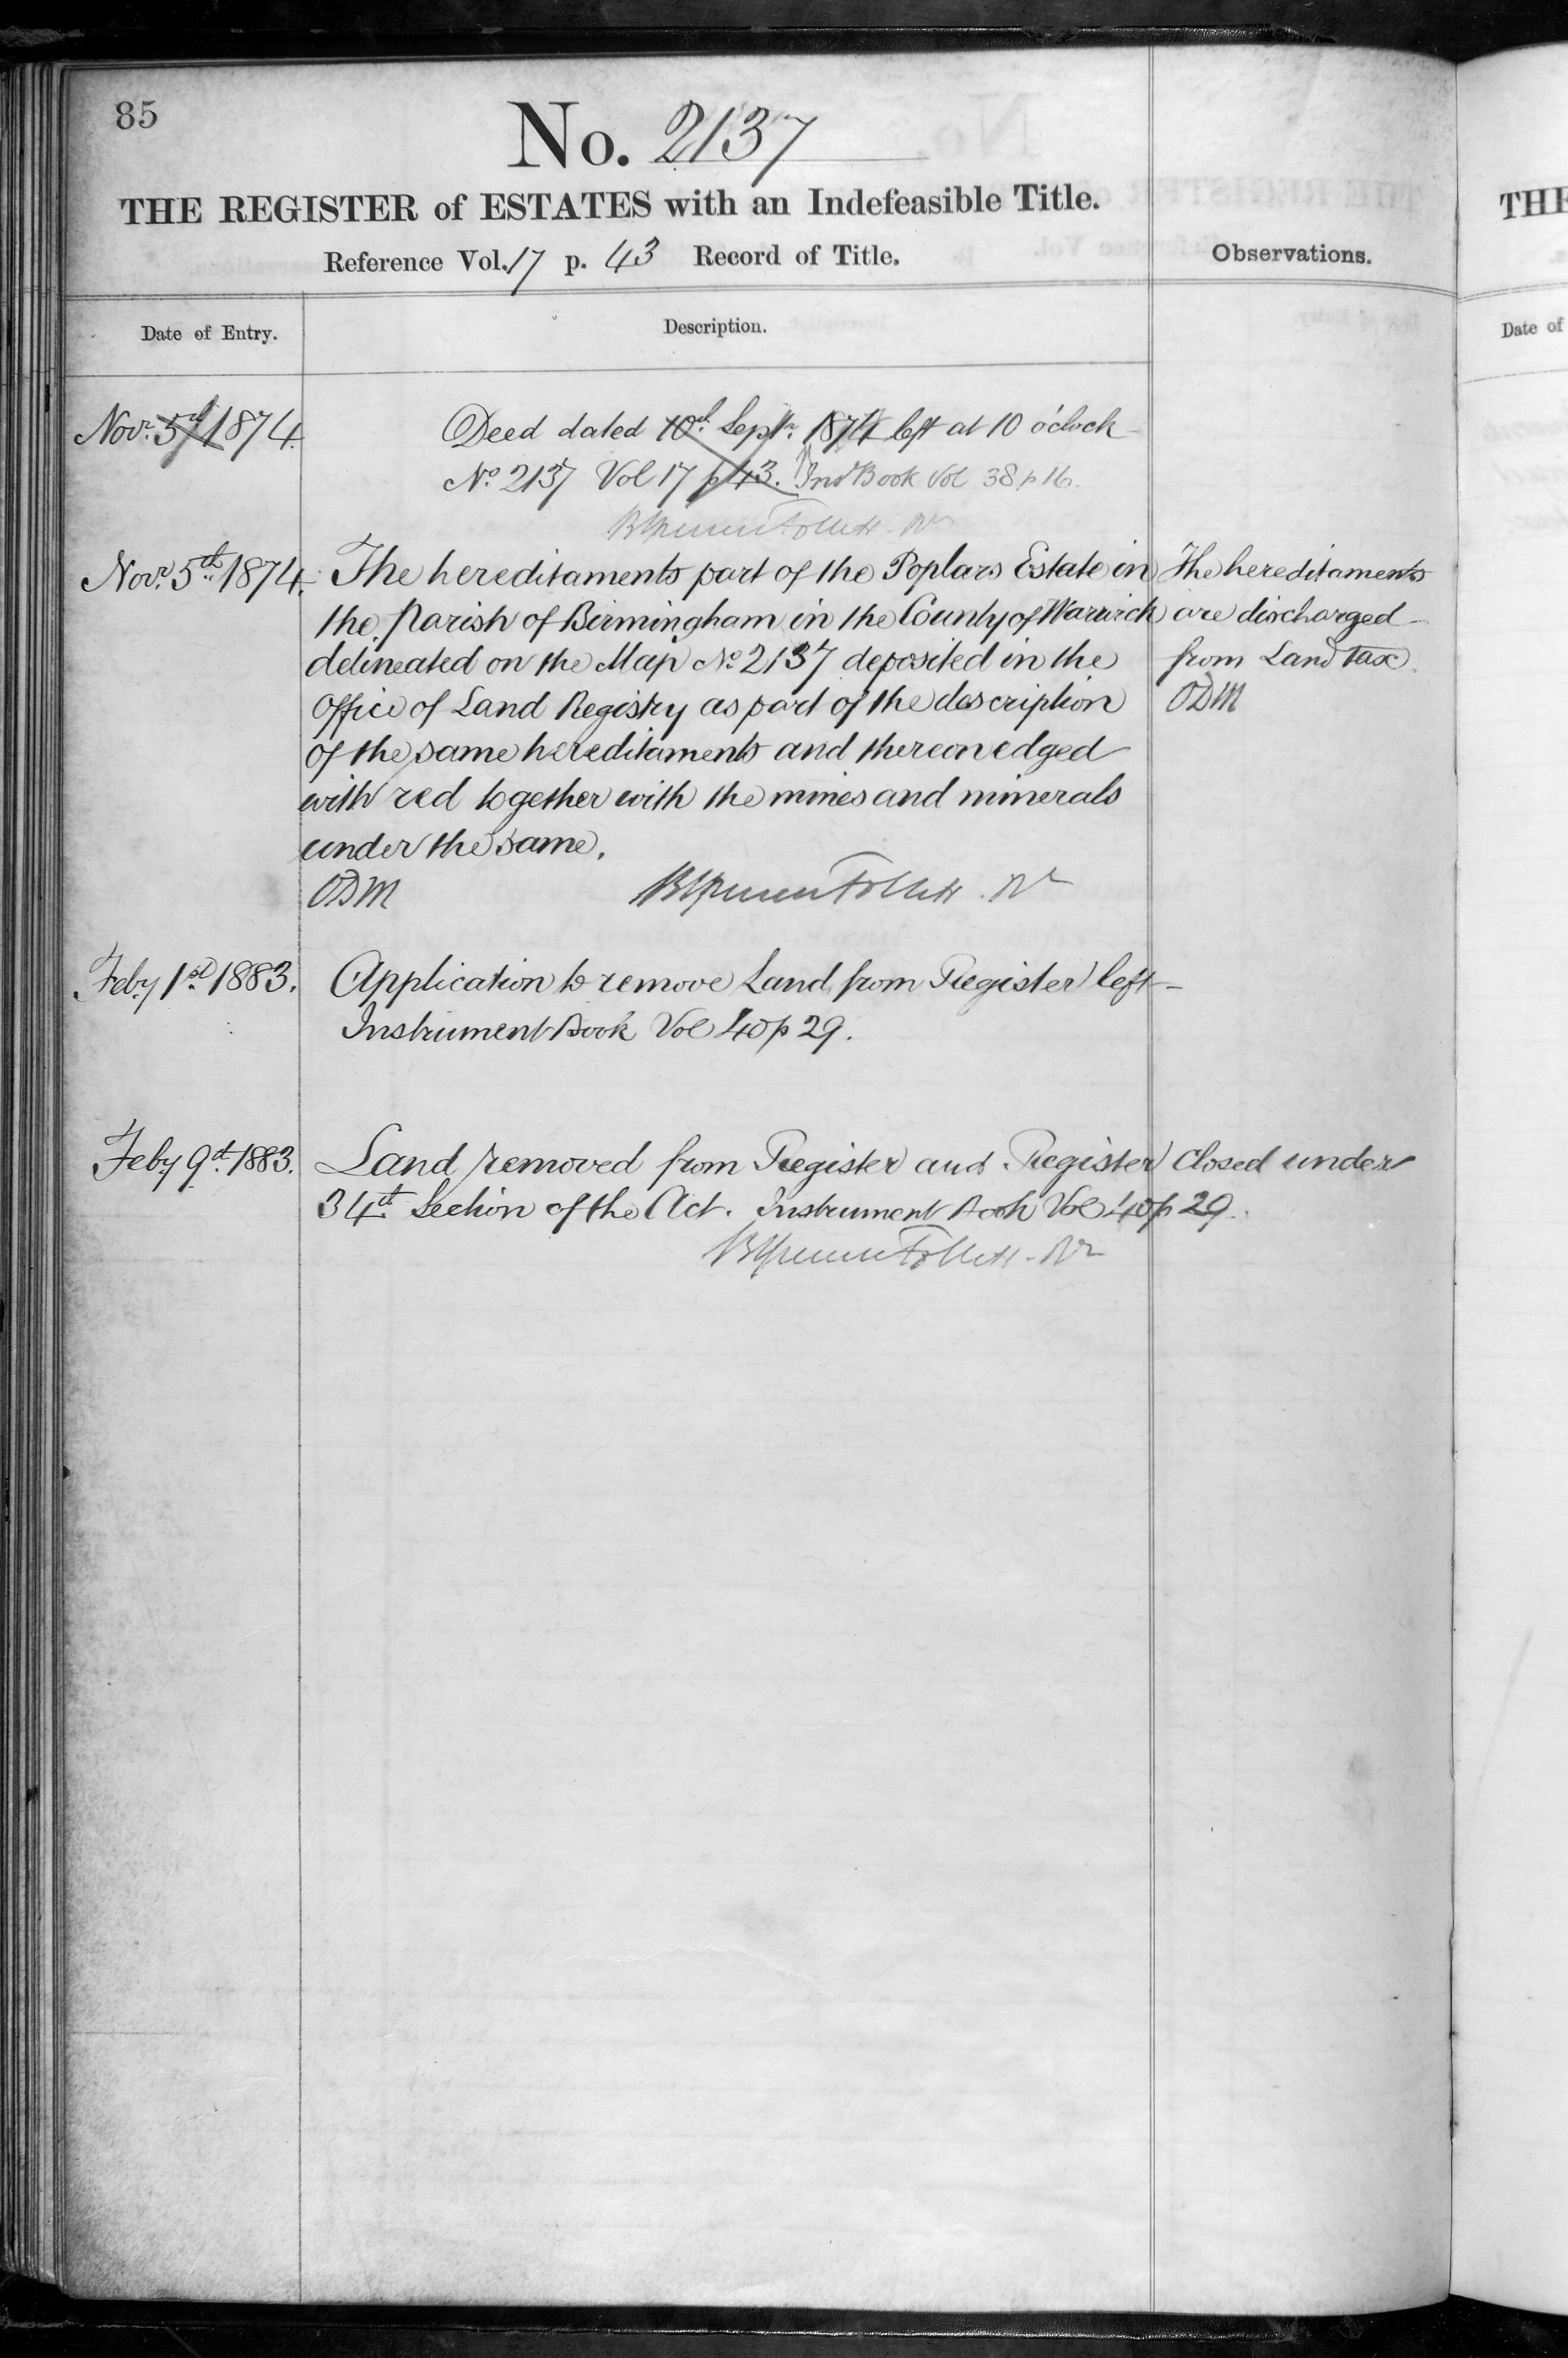 85
No. 2137
THE REGISTER of ESTATES with an Indefeasible Title.
Reference Vol. 17 p. 43 Record of Title.
Observations.
Date of Entry.
Description.
Novr. 5th 1874.
Deed dated 10th Septr. 1874 left at 10 o'clock
No. 2137 Vol 17 p 43. Inst Book Vol 38 p 16.
Follett
Novr. 5th 1874.
The hereditaments part of the Poplars Estate in
the Parish of Birmingham in the County of Warwick
delineated on the Map No. 2137 deposited in the
Office of Land Registry as part of the description
of the same hereditaments and thereon edged
with red together with the mines and minerals
under the same.
ODM Follett
The hereditaments
are discharged
from Land Tax
ODM
Feby 1st 1883.
Application to remove Land from Register left
Instrument Book Vol 40 p 29.
Feby 9th 1883.
Land removed from Register and Register Closed under
34th Section of the Act. Instrument Book Vol 40 p 29.
Follett
THE
Date of